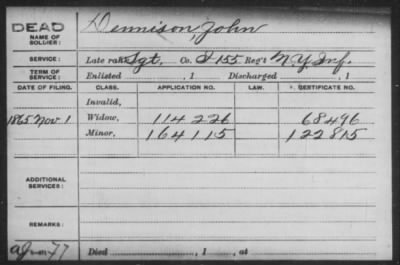 DEAD
NAME OF SOLDIER: Dennison John
SERVICE: Late rank Sgt, Co. I 155 Reg't N.Y. Inf.
TERM OF SERVICE: Enlisted , 1 Discharged , 1
DATE OF FILING. CLASS. APPLICATION NO. LAW. CERTIFICATE NO.
Invalid,
1865 Nov 1 Widow, 114226 68496
Minor, 164115 122815
ADDITIONAL SERVICES:
REMARKS:
77 Died , 1 , at